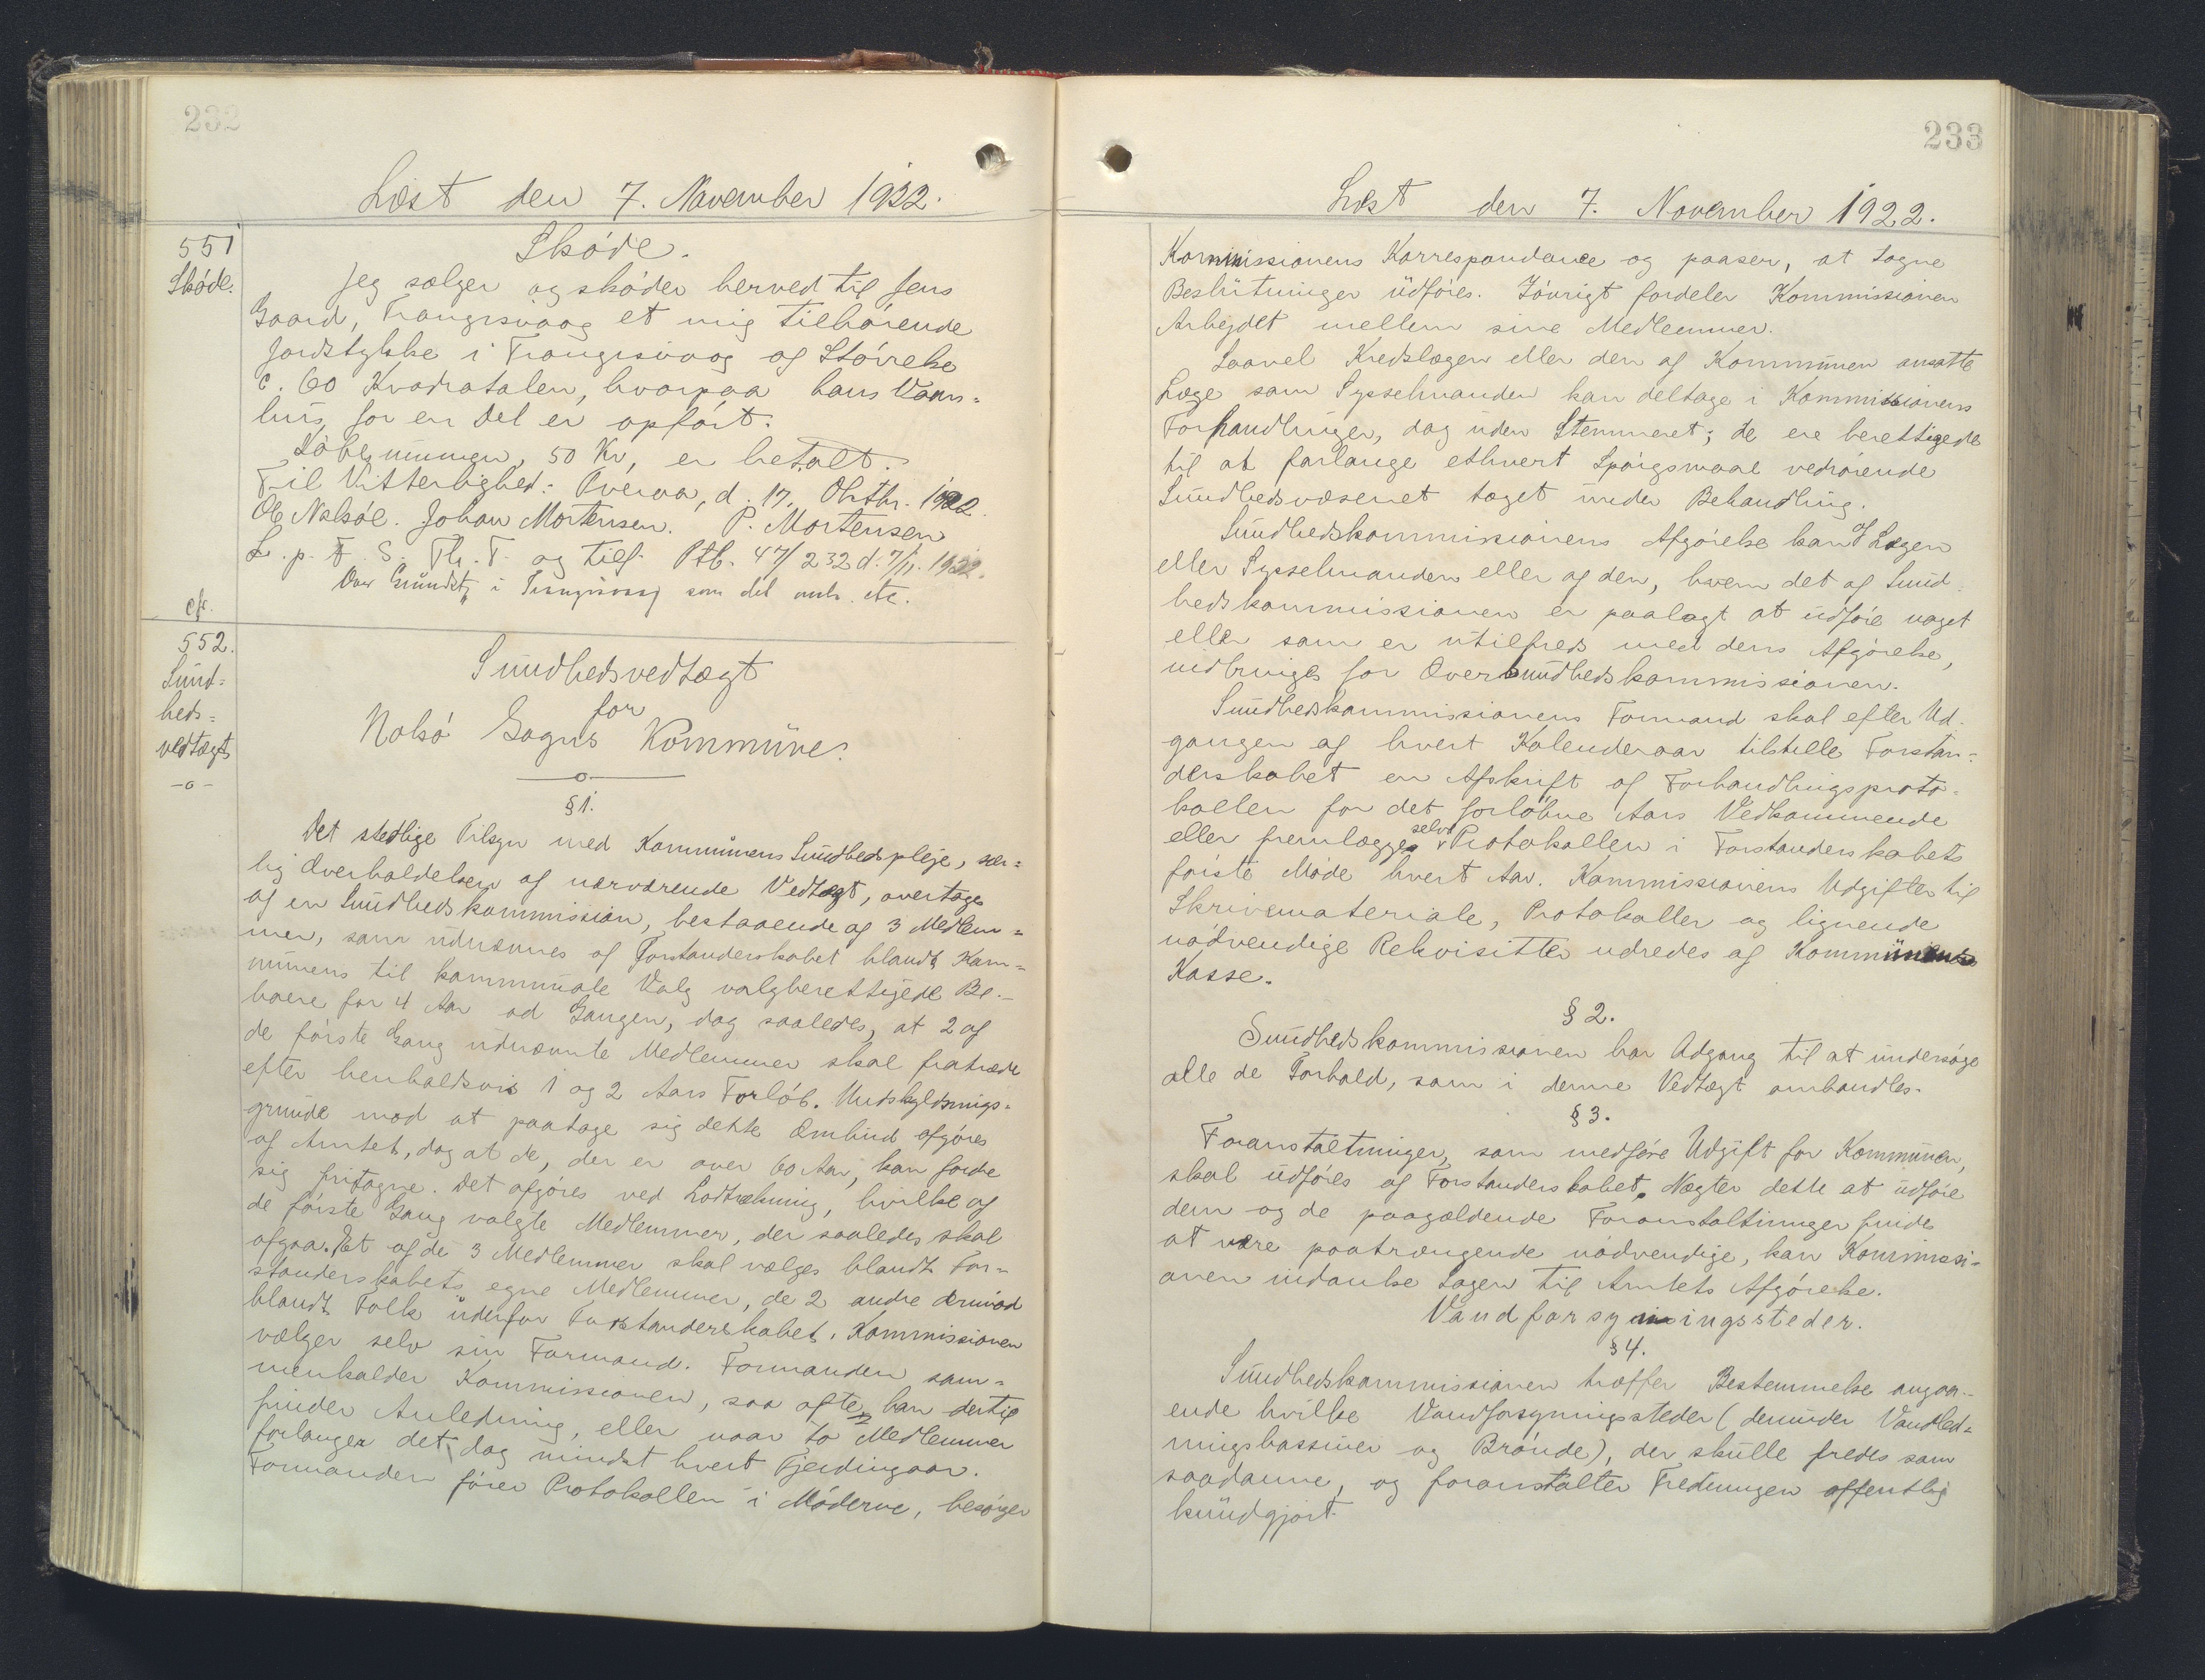 232
Læst den 7. November 1922.
551
Skøde.
Skøde.
Jeg sælger og skøder herved til Jens
Gaard, Trangisvaag et mig tilhørende
Jordstykke i Trangisvaag af Størrelse
c. 60 Kvadratalen, hvorpaa hans Vaan=
hus, for en Del er opført.
Købesummen, 50 Kr, er betalt.
Til Vitterlighed: Tveraa, d. 17. Oktbr. 1922.
Ole Nolsøe. Johan Mortensen. P. Mortensen
L. p. F. S. Th. T. og tilf. Ptb. 47/232 d. 7/11. 1922.
Over Grundst. i Trangisvaag som del anh. etc.
cfr.
552.
Sund=
heds=
vedtægt
-o-
Sundhedsvedtægt
for
Nolsø Sogns Kommune.
§1.
Det stedlige Tilsyn med Kommunens Sundhedspleje, sær=
lig Overholdelsen af nærværende Vedtægt, overtages
af en Sundhedskommission, bestaaende af 3 Medlem=
mer, som udnævnes af Forstanderskabet blandt Kom=
munens til kommunale Valg valgberettigede Be=
boere for 4 Aar ad Gangen, dog saaledes, at 2 af
de første Gang udnævnte Medlemmer skal fratræde
efter henholdsvis 1 og 2 Aars Forløb. Undskyldnings=
grunde mod at paatage sig dette Ombud afgøres
af Amtet, dog at de, der er over 60 Aar, kan fordre
sig fritagne. Det afgøres ved Lodtrækning, hvilke af
de første Gang valgte Medlemmer, der saaledes skal
afgaa. Et af de 3 Medlemmer skal vælges blandt For=
standerskabets egne Medlemmer, de 2 andre derimod
blandt Folk udenfor Forstanderskabet. Kommissionen
vælger selv sin Formand. Formanden sam=
menkalder Kommissionen, saa ofte han dertil
finder Anledning, eller naar to Medlemmer
forlanger det, dog mindst hvert Fjerdingaar.
Formanden fører Protokollen i Møderne, besørger
233
Læst den 7. November 1922.
Kommissionens Korrespondance og paaser, at tagne
Beslutninger udføres. Iøvrigt fordeler Kommissionen
Arbejdet mellem sine Medlemmer.
Saavel Kredslægen eller den af Kommunen ansatte
Læge som Sysselmanden kan deltage i Kommissionens
Forhandlinger, dog uden Stemmeret; de ere berettigede
til at forlange ethvert Spørgsmaal vedrørende
Sundhedsvæsenet taget under Behandling.
Sundhedskommissionens Afgørelse kan af Lægen
eller Sysselmanden eller af den, hvem det af Sund=
hedskommissionen er paalagt at udføre noget
eller som er utilfreds med dens Afgørelse,
indbringes for Oversundhedskommissionen.
Sundhedskommissionens Formand skal efter Ud=
gangen af hvert Kalenderaar tilstille Forstan=
derskabet en Afskrift af Forhandlingsproto=
kollen for det forløbne Aars Vedkommende
eller fremlægge selve Protokollen i Forstanderskabets
første Møde hvert Aar. Kommissionens Udgifter til
Skrivemateriale, Protokoller og lignende
nødvendige Rekvisitter udredes af Kommunens
Kasse.
§2.
Sundhedskommissionen har Adgang til at undersøge
alle de Forhold, som i denne Vedtægt omhandles.
§3.
Foranstaltninger, som medføre Udgift for Kommunen,
skal udføres af Forstanderskabet. Nægter dette at udføre
dem og de paagældende Foranstaltninger findes
at være paatrængende nødvendige, kan Kommissi=
onen indanke Sagen til Amtets Afgørelse.
Vandforsyningssteder.
§4.
Sundhedskommissionen træffer Bestemmelse angaa=
ende hvilke Vandforsyningssteder (derunder Vandled=
ningsbassiner og Brønde), der skulle fredes som
saadanne, og foranstalter Fredningen offentlig
kundgjort.